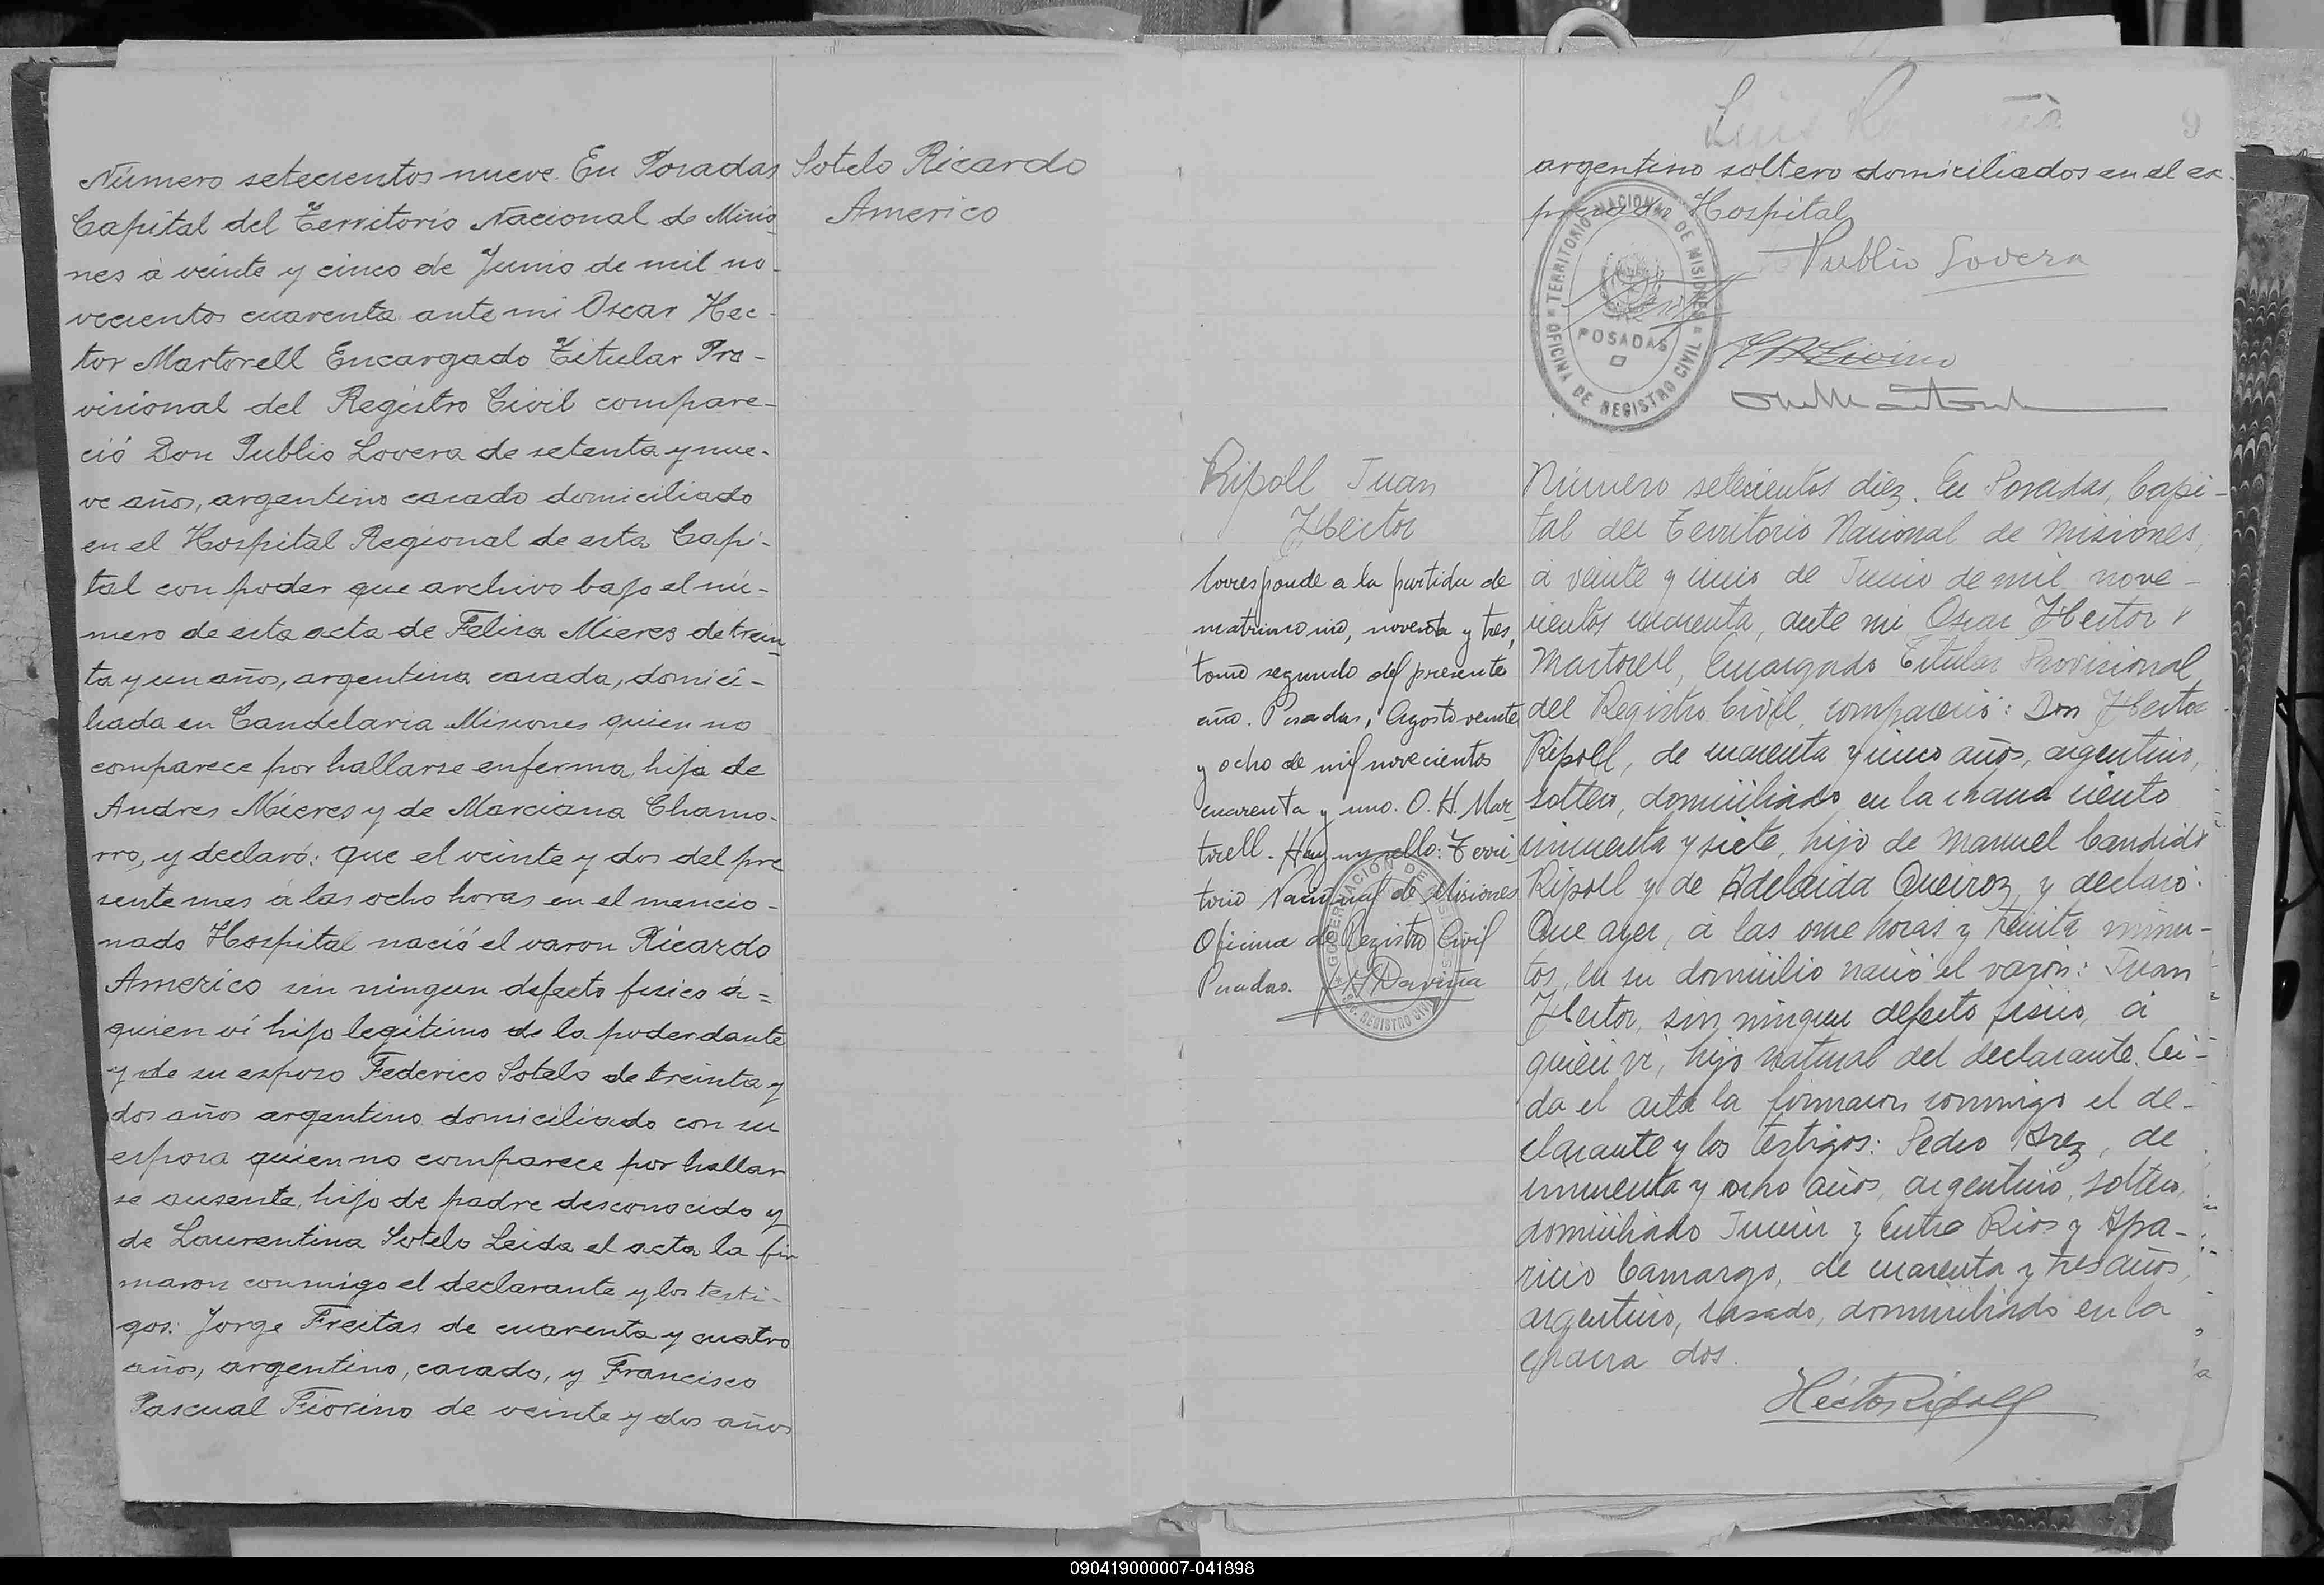 Número setecientos nueve. En Posadas
Capital del Territorio Nacional de Misio-
nes à veinte y cinco de Junio de mil no-
vecientos cuarenta ante mi Oscar Hec-
tor Martorell Encargado Titular Pro-
visional del Registro Civil compare-
ció Don Publio Lovera de setenta y nue-
ve años, argentino casado domiciliado
en el Hospital Regional de esta Capi-
tal con poder que archivo bajo el nú-
mero de esta acta de Felisa Mieres de trein
ta y un años, argentina casada, domici-
liada en Candelaria Misiones quien no
comparece por hallarse enferma, hija de
Andres Mieres y de Marciana Chamo-
rro, y declaró: que el veinte y dos del pre
sente mes à las ocho horas en el mencio-
nado Hospital nació el varon Ricardo
Americo sin ningun defecto fisico á=
quien ví hijo legítimo de la poderdante
y de su esposo Federico Sotelo de treinta y
dos años argentino domiciliado con su
esposa quien no comparece por hallar
se ausente, hijo de padre desconocido y
de Laurentina Sotelo Leida el acta la fir
maron conmigo el declarante y los testi-
gos: Jorge Freitas de cuarenta y cuatro
años, argentino, casado, y Francisco
Pascual Fiorino de veinte y dos años
Sotelo Ricardo
Americo
Luis
9
argentino soltero domiciliados en el ex-
Hospital
Publio Lovera
TERRITORIO NACIONAL DE MISIONES
POSADAS
OFICINA DE REGISTRO CIVIL
Ripoll Juan
Héctor
Corresponde a la partida de
matrimonio, noventa y tres,
tomo segundo del presente
año. Posadas, Agosto veinte
y ocho de mil novecientos
cuarenta y uno. O. H. Mar-
torell. Hay un sello: Terri-
torio Nacional de Misiones
Oficina de Registro Civil
Posadas.
GOBERNACION DE
REGISTRO CIVIL
Número setecientos diez. En Posadas, Capi-
tal del Territorio Nacional de Misiones,
á veinte y cinco de Junio de mil nove-
cientos cuarenta, ante mi Oscar Hector
Martorell, Encargado Titular Provisional
del Registro Civil, compareció: Don Hector
Ripoll, de cuarenta y cinco años, argentino,
soltero, domiciliado en la chacra ciento
cincuenta y siete, hijo de Manuel Candido
Ripoll y de Adelaida Queiroz, y declaró:
Que ayer, á las once horas y treinta minu-
tos, en su domicilio nació el varón: Juan
Hector, sin ningun defecto fisico, á
quien ví, hijo natural del declarante. Lei-
da el acta la firmaron conmigo el de-
clarante y los testigos: Pedro Arez, de
cincuenta y ocho años, argentino, soltero,
domiciliado Junin y Entre Rios y Apa-
ricio Camargo, de cuarenta y tres años,
argentino, casado, domiciliado en la
chacra dos.
Héctor Ripoll
090419000007-041898